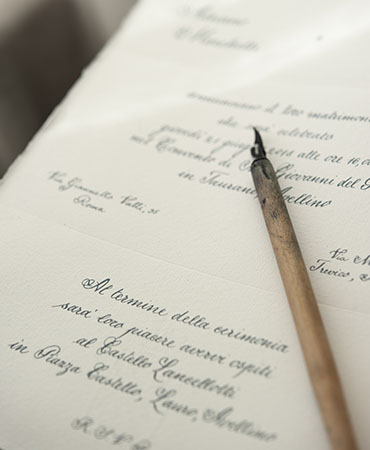 annunciano il loro matrimonio
che sarà celebrato
giovedì 21 giugno alle ore 16,
nel Convento di Giovanni del
in Taurano, Avellino
Via Giannetto Valli, 31
Roma
Via
Trevico,
Al termine della cerimonia
sarà loro piacere avervi ospiti
al Castello Lancellotti
in Piazza Castello, Lauro, Avellino
R.S.V.P.